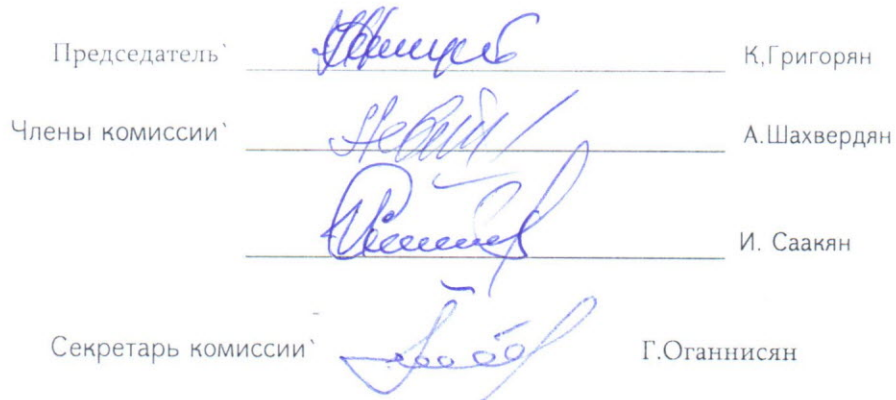 Председатель` К,Григорян
Члены комиссии` А.Шахвердян
И. Саакян
Секретарь комиссии` Г.Оганнисян